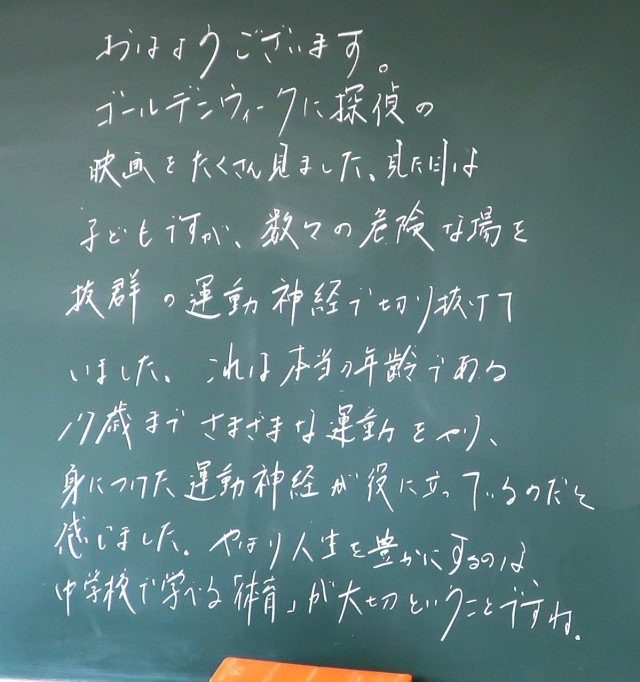 おはようございます。
ゴールデンウィークに探偵の
映画をたくさん見ました、見た目は
子どもですが、数々の危険な場を
抜群の運動神経で切り抜けて
いました。これは本当の年齢である
17歳までさまざまな運動をやり、
身につけた運動神経が役に立っているのだと
感じました。やはり人生を豊かにするのは
中学校で学べる「体育」が大切ということですね。